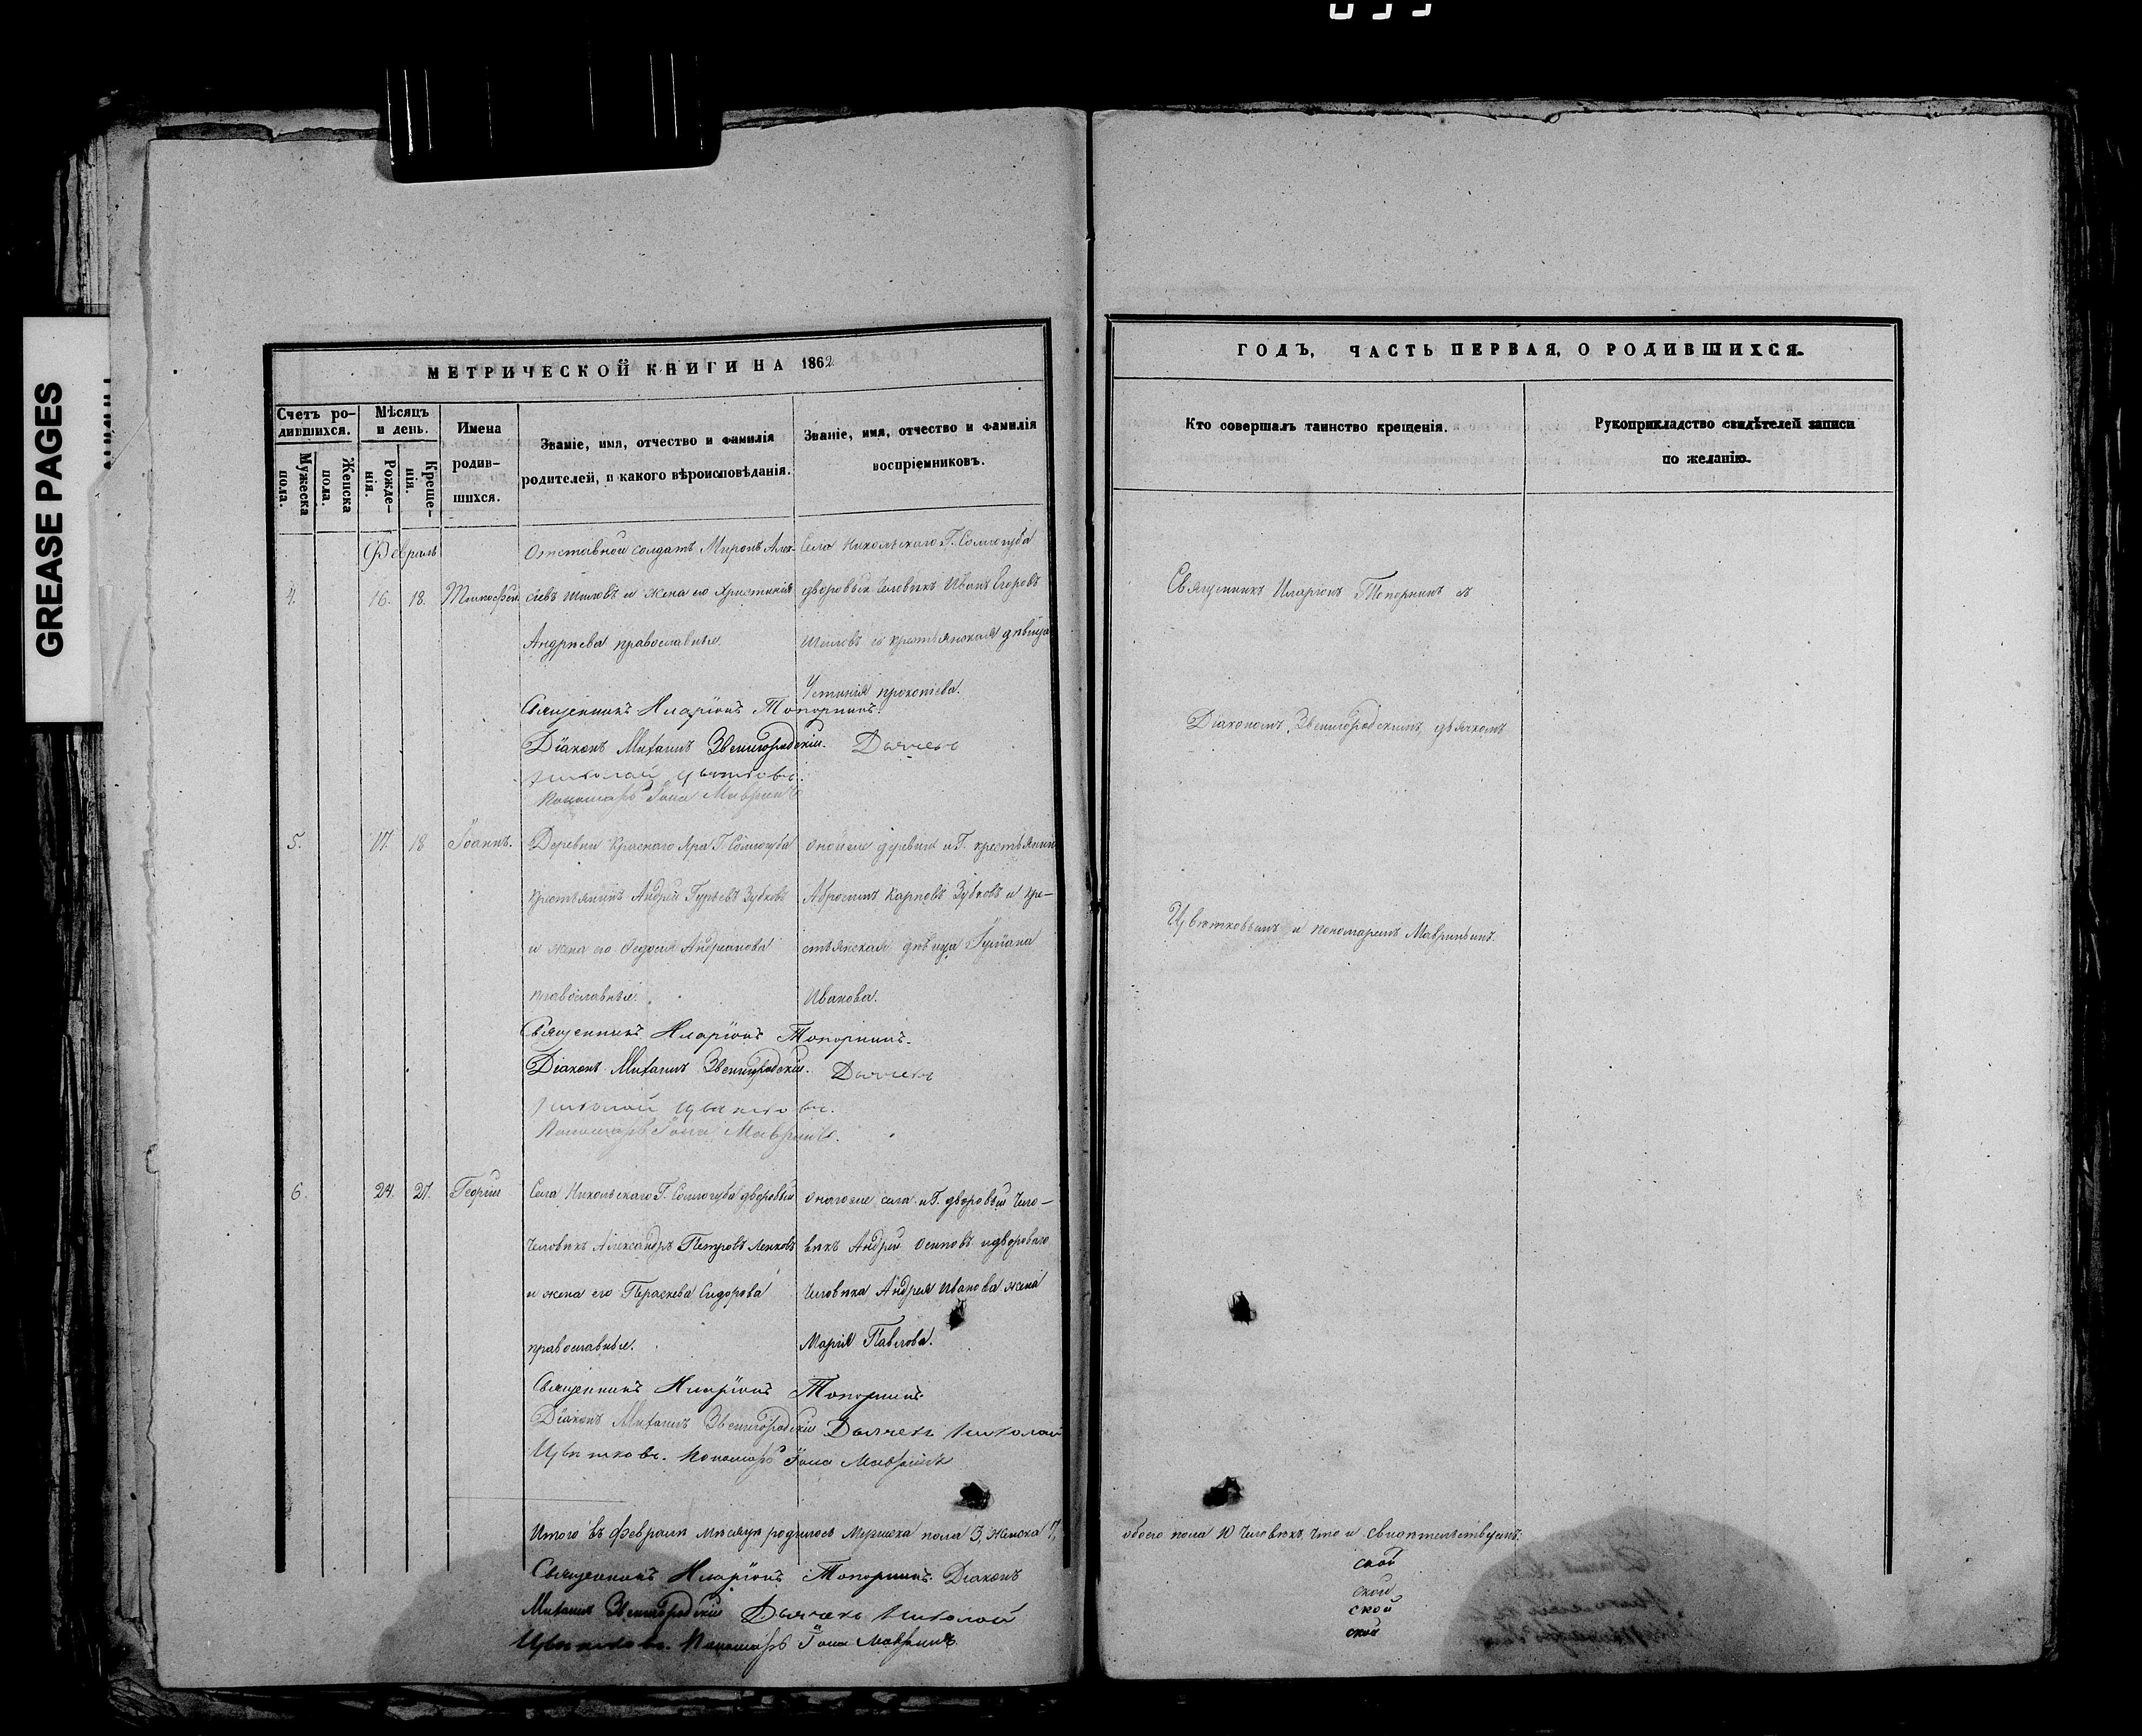 GREASE PAGES
МЕТРИЧЕСКОЙ КНИГИ НА 1862
Счетъ ро-
дившихся.
Мужеска
пола.
Женска
пола.
Мѣсяцъ
и день.
Рожде-
нія.
Креще-
нія.
Имена
родив-
шихся.
Званіе, имя, отчество и фамилія
родителей, и какого вѣроисповѣданія.
Званіе, имя, отчество и фамилія
воспріемниковъ.
Февраль
4. 16. 18. Тимофей.
Отставной солдатъ Миронъ Алек-
сѣевъ и жена его Христинія
Андрѣева православные.
Села Никольскаго Г. Соллогуба
дворовый человѣкъ Иванъ Егоровъ
и крестьянская дѣвица
Устинія Прокопіева.
Священникъ Иларіонъ Топорнинъ.
Діаконъ Михаилъ Звенигородскій. Дьячекъ
Николай Цвѣтковъ.
Пономарь Іона Мавринъ
5. 17. 18 Іоаннъ.
Деревни Краснаго Яра Г. Соллогуба
крестьянинъ Андрей Гурьевъ Зубковъ
и жена его Федосія Андріанова
православные.
Оной же деревни и Г. крестьянинъ
Абросимъ Карповъ Зубковъ и кре-
стьянская дѣвица
Иванова.
Священникъ Иларіонъ Топорнинъ.
Діаконъ Михаилъ Звенигородскій. Дьячекъ
Николай Цвѣтковъ.
Пономарь Іона Мавринъ.
6. 24. 27. Георгій
Села Никольскаго Г. Соллогуба дворовый
человѣкъ Александръ Петровъ
и жена его Параскева Сидорова
православные.
Онаго же села и Г. дворовый чело-
вѣкъ Андрей Осиповъ и двороваго
человѣка Андрея Иванова жена
Марія Павлова.
Священникъ Иларіонъ Топорнинъ.
Діаконъ Михаилъ Звенигородскій Дьячекъ Николай
Цвѣтковъ. Пономарь Іона Мавринъ
Итого въ Февралѣ мѣсяцѣ родилось Мужеска пола 3, Женска 7,
Священникъ Иларіонъ Топорнинъ. Діаконъ
Михаилъ Звенигородскій Дьячекъ Николай
Цвѣтковъ. Пономарь Іона Мавринъ
ГОДЪ, ЧАСТЬ ПЕРВАЯ, О РОДИВШИХСЯ.
Кто совершалъ таинство крещенія.
Рукоприкладство свидѣтелей записи
по желанію.
Священникъ Иларіонъ Топорнинъ съ
Діакономъ Звенигородскимъ, дьячкомъ
Цвѣтковымъ и пономаремъ Мавринымъ.
обоего пола 10 человѣкъ что и свидѣтельствуемъ.
ской
ской
ской
ской